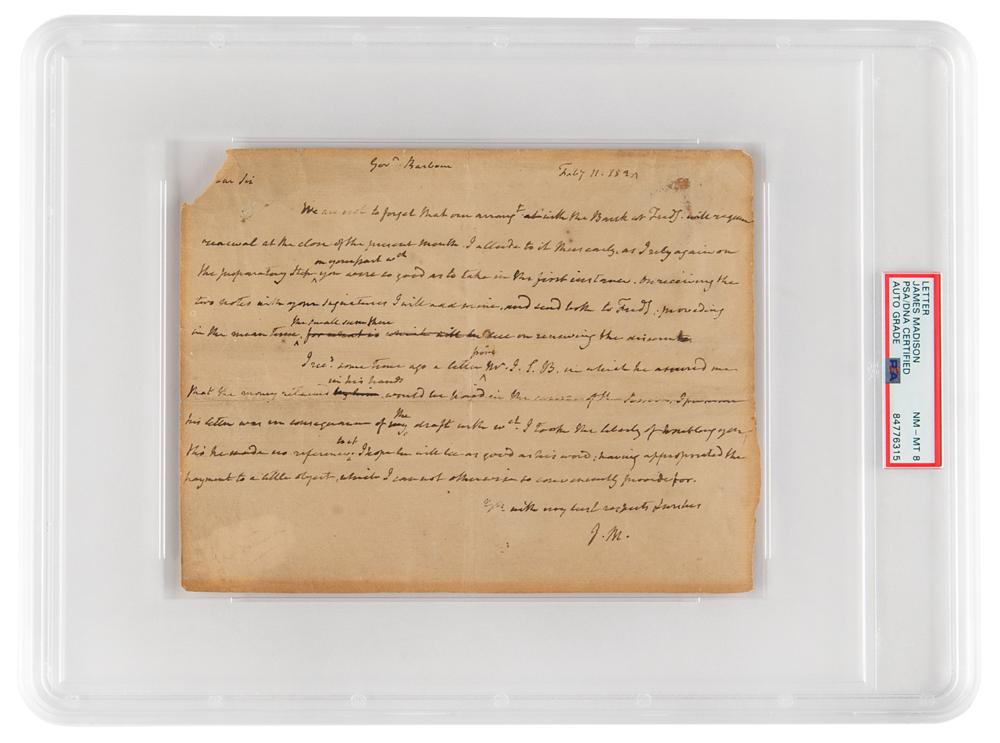 Govr. Barbour Feby 11. 182
ear Sir
We are not to forget that our arrangt. with the Bank at Fredg. will require
renewal at the close of the present month. I allude to it thus early, as I rely again on
on your part wch
the preparatory step, you were so good as to take in the first instance. On receiving the
two notes with your signatures I will add mine, and send both to Fredg. providing
the small sum there
in the mean time, for what is which will be due on renewing the discount.
from
I recd. some time ago a letter Mr. J. S. B. in which he assured me
in his hands
that the money retained would be paid in the course of the Session. I presume
the
his letter was in consequence of my draft with wch. I took the liberty of troubling you,
to it
tho' he made no reference. I hope he will be as good as his word; having appropriated the
payment to a little object, which I can not otherwise so conveniently provide for.
with my best respects & wishes
J. M.
LETTER
JAMES MADISON
PSA/DNA CERTIFIED
AUTO GRADE
PSA
NM – MT 8
84776315